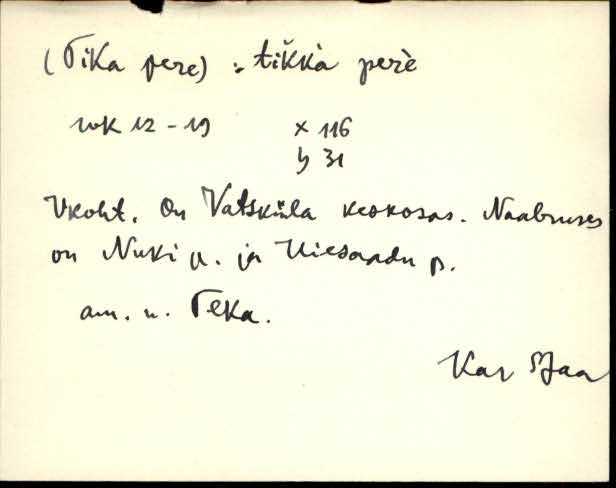 (Tika pere) : tikkà perè
wk 12-19 x 116
y 31
Vkoht. On Vatsküla keskosas. Naabruses
on Nuki p. ja Uiesaadu p.
am. n. Teka.
Kar Jaa